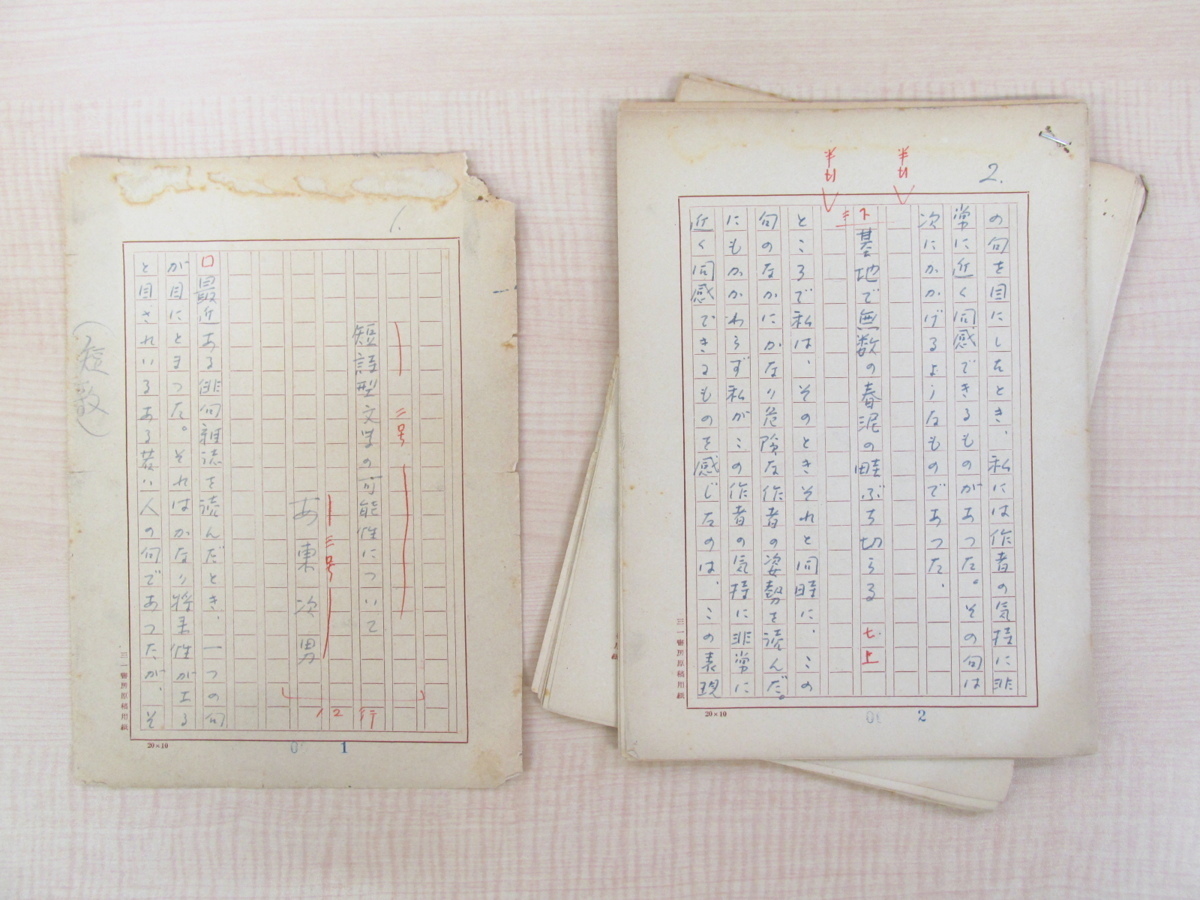 1.
二号
短詩型文学の可能性について
三号
あ東次男
12行
最近ある俳句雑誌を読んだとき、一つの句
が目にとまつた。それはかなり将来性がある
と目されいるある若い人の句であつたが、そ
三一書房原稿用紙
20×10
1
2.
の句を目にしたとき、私には作者の気持に非
常に近く同感できるものがあつた。その句は
次にかかげるようなものであつた、
半行
基地で無数の春泥の畦ぶち切らる
半行
ところで私は、そのときそれと同時に、この
句のなかにかなり危険な作者の姿勢を読んだ。
にもかかわらず私がこの作者の気持に非常に
近く同感できるものを感じたのは、この表現
三一書房原稿用紙
20×10
2